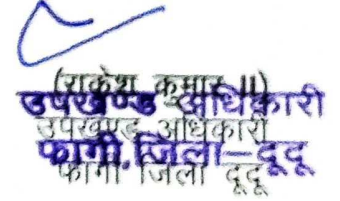 (राकेश कुमार II)
उपखण्ड अधिकारी
उपखण्ड अधिकारी
फागी, जिला-दूदू
फागी जिला दूदू